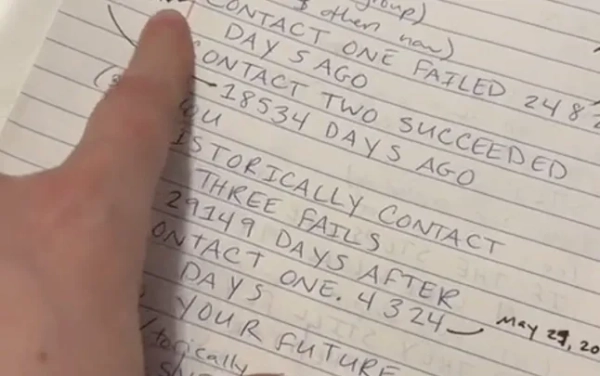 group)
& then now)
CONTACT ONE FAILED 2482
DAYS AGO
CONTACT TWO SUCCEEDED
18534 DAYS AGO
ISTORICALLY CONTACT
THREE FAILS
29149 DAYS AFTER
ONTACT ONE. 4324 —
DAYS
May 27, 20
YOUR FUTURE
torically